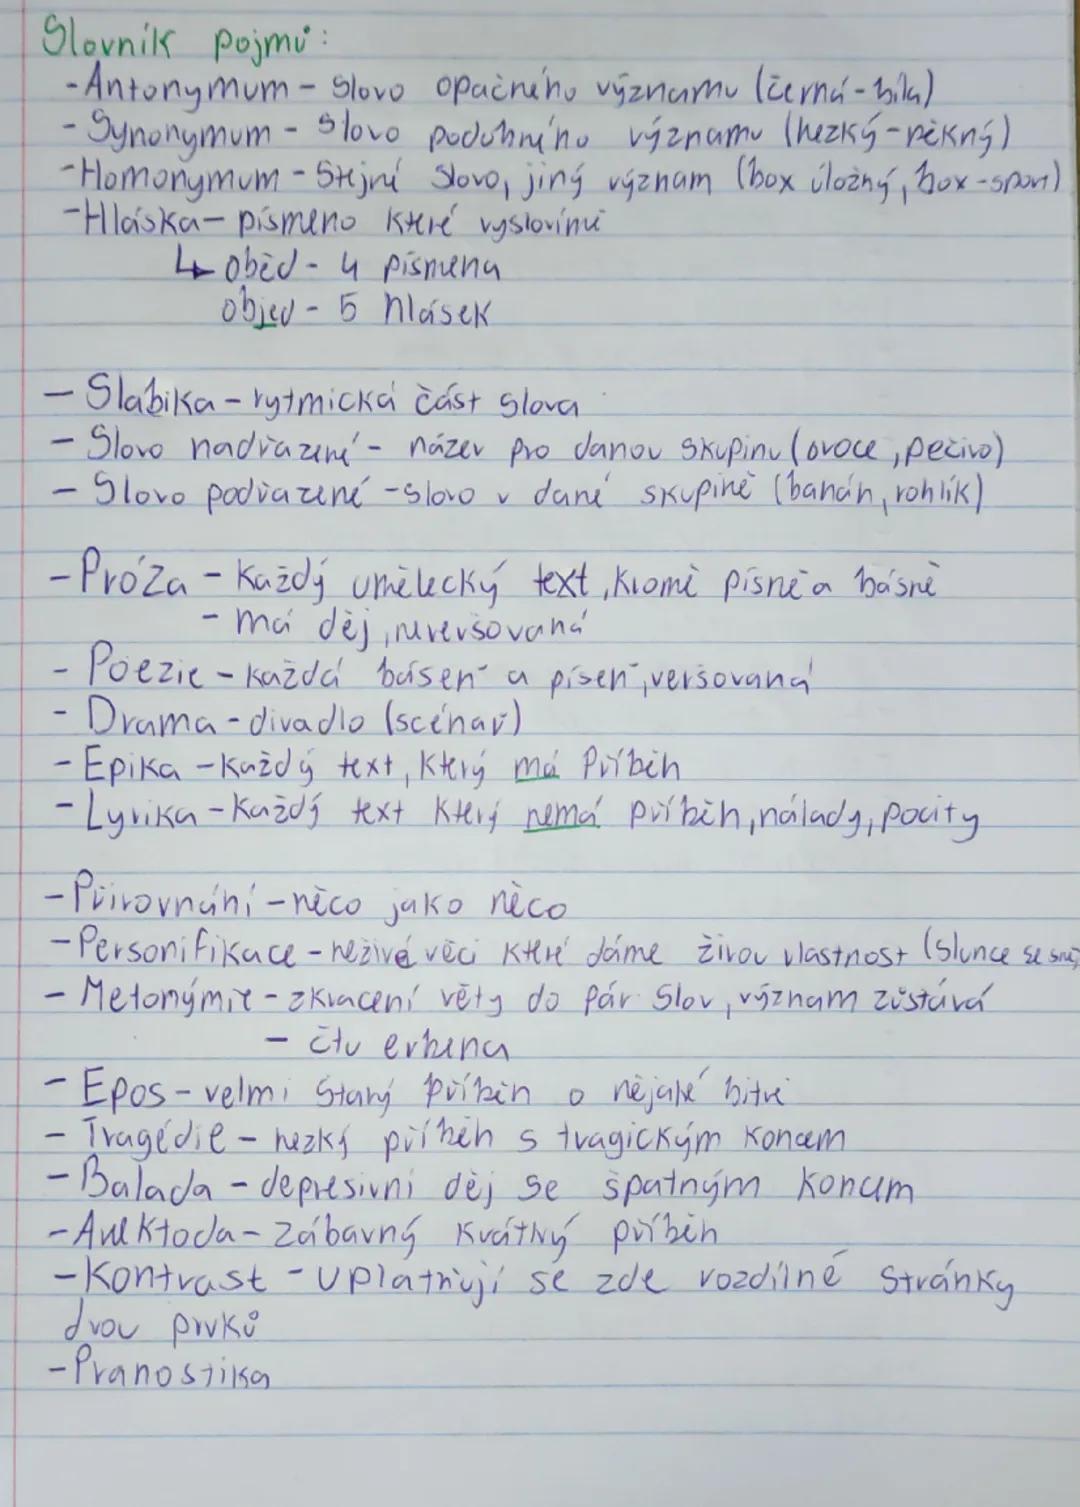 Slovník pojmů:
- Antonymum - slovo opačného významu (černá - bílá)
- Synonymum - slovo podobného významu (hezký - pěkný)
- Homonymum - Stejné slovo, jiný význam (box úložný, box - sport)
- Hláska - písmeno které vyslovíme
↳ oběd - 4 písmena
objed - 5 hlásek
- Slabika - rytmická část slova
- Slovo nadřazené - název pro danou skupinu (ovoce, pečivo)
- Slovo podřazené - slovo v dané skupině (banán, rohlík)
- Próza - Každý umělecký text, kromě písně a básně
- má děj, neveršovaná
- Poezie - každá báseň a píseň, veršovaná
- Drama - divadlo (scénář)
- Epika - každý text, který má Příběh
- Lyrika - Každý text který nemá příběh, nálady, pocity
- Přirovnání - něco jako něco
- Personifikace - neživé věci které dáme živou vlastnost (slunce se směj
- Metonýmie - zkrácení věty do pár slov, význam zůstává
- čtu erbena
- Epos - velmi starý příběh o nějaké bitvě
- Tragédie - hezký příběh s tragickým koncem
- Balada - depresivní děj se špatným koncem
- Anektoda - zábavný krátký příběh
- Kontrast - uplatňují se zde rozdílné stránky
dvou prvků
- Pranostika